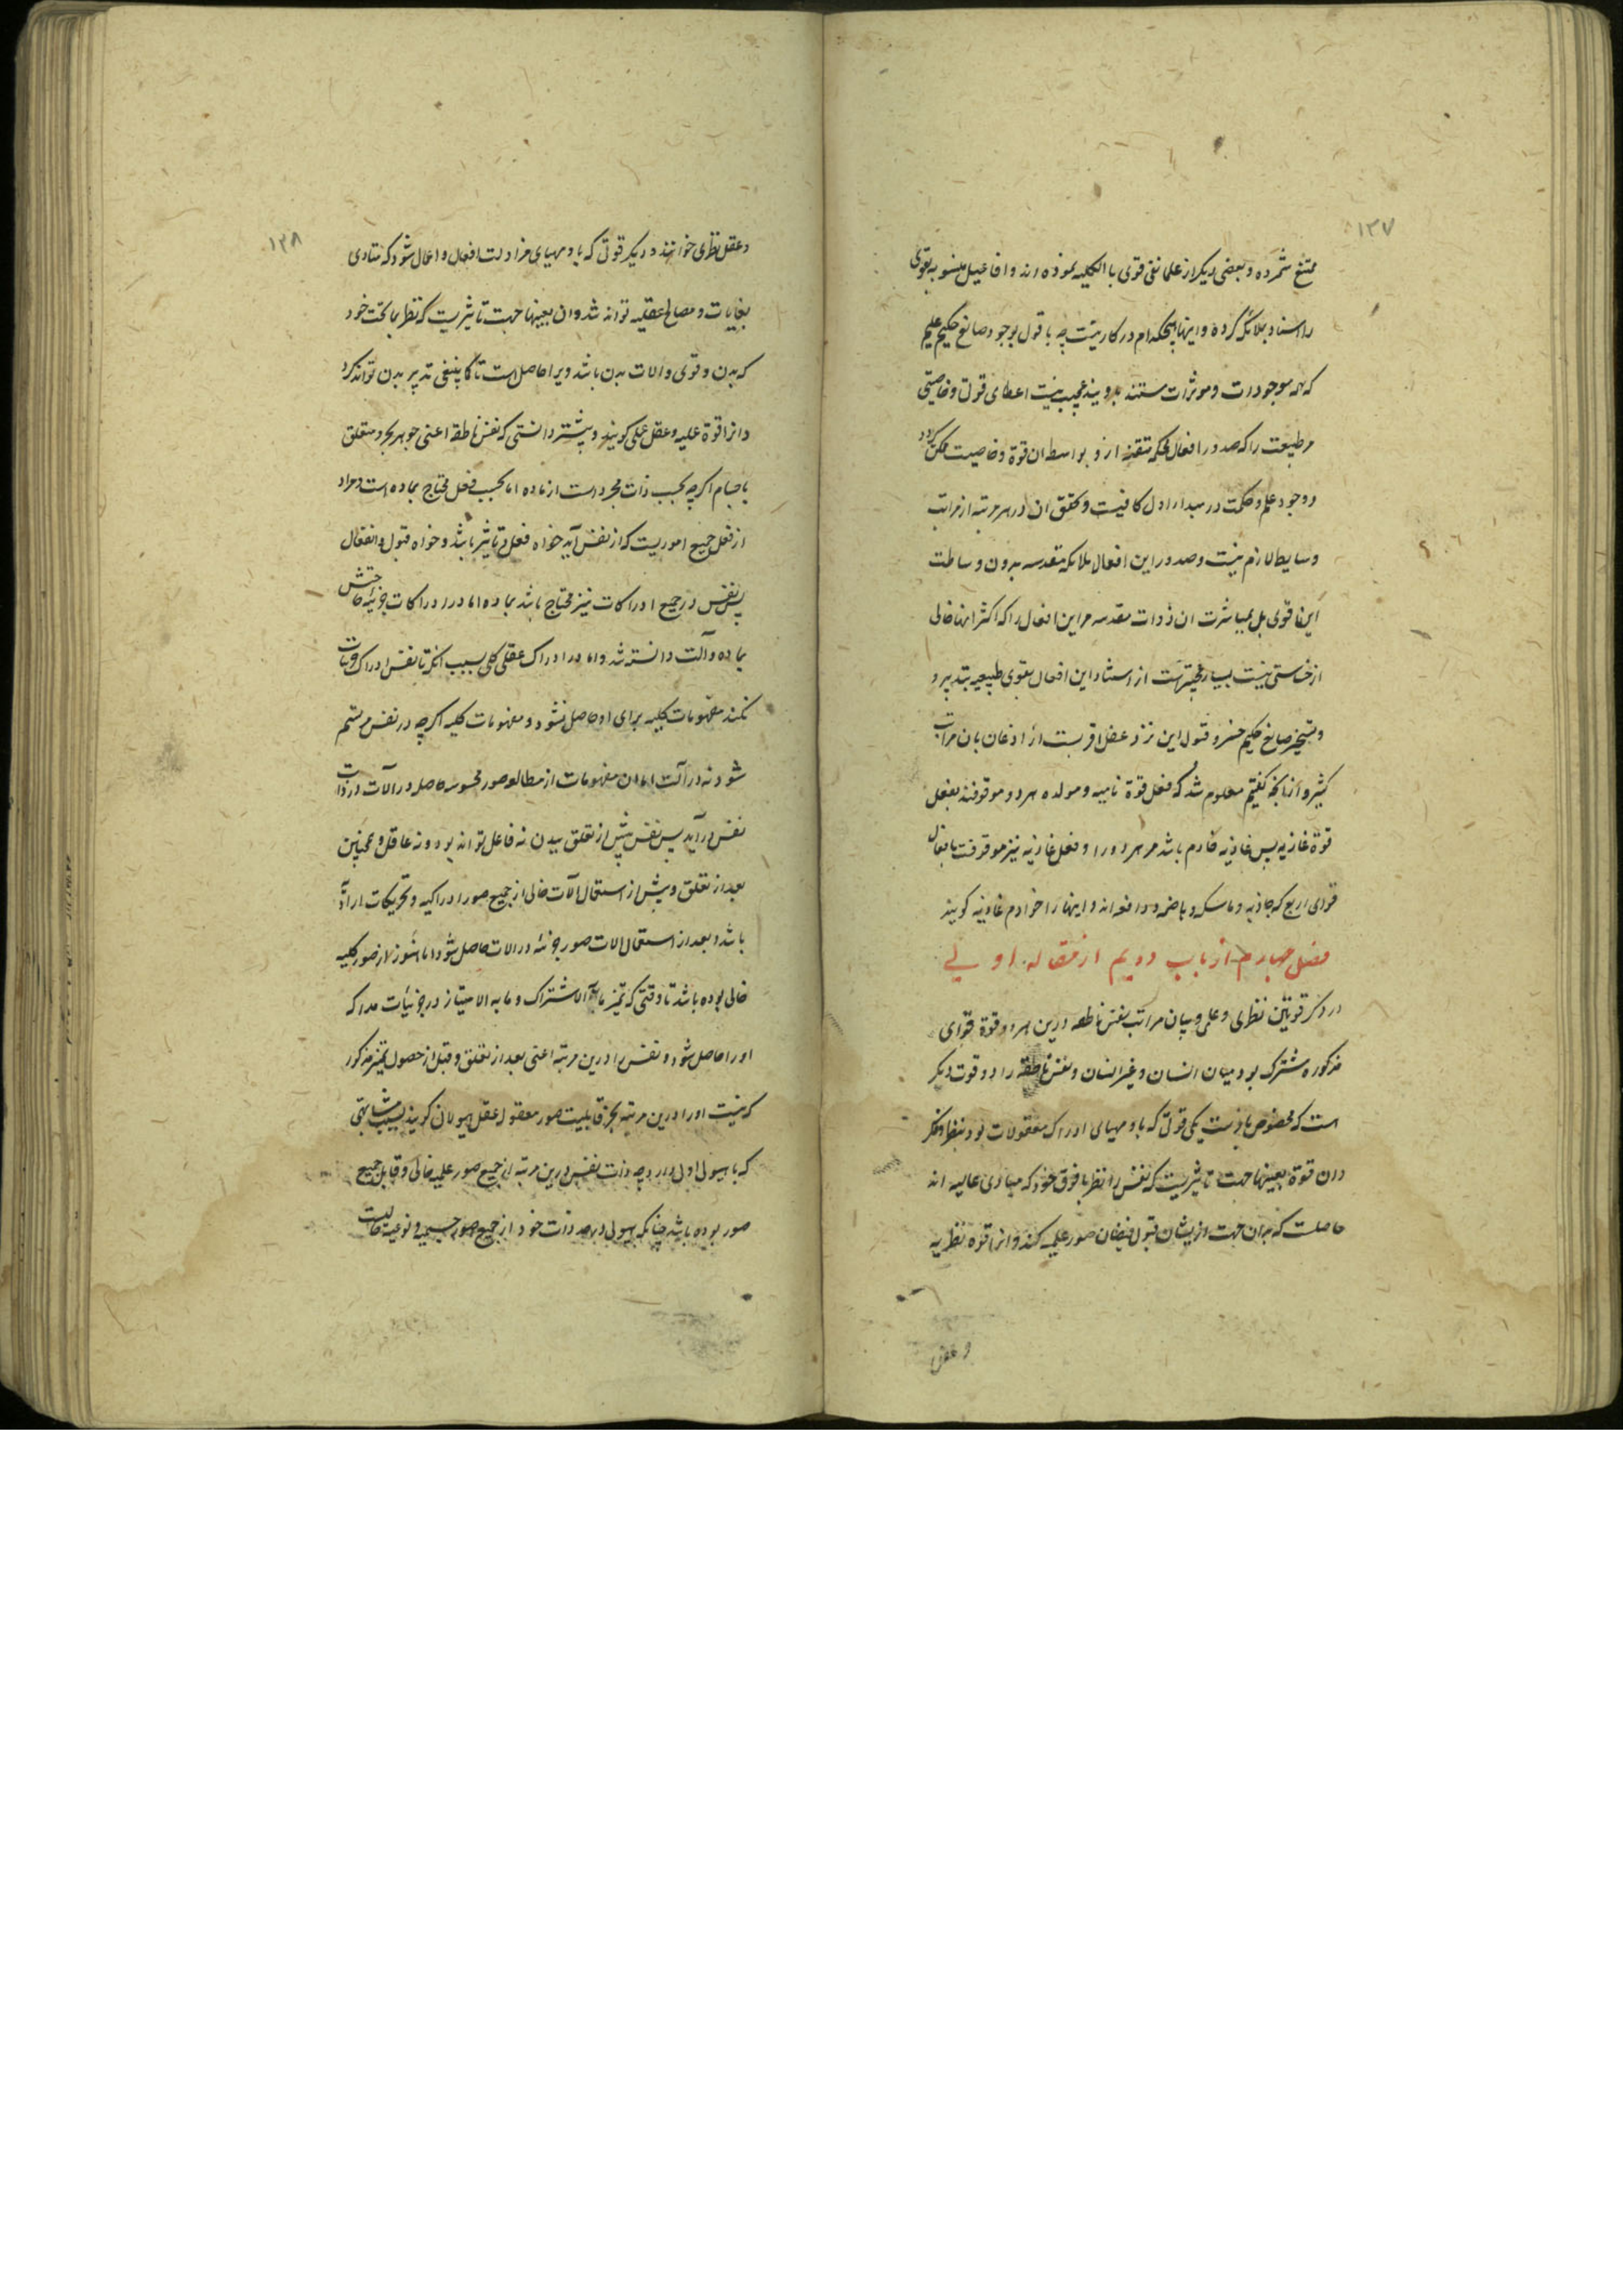 ۱۳۷
ممتنع شمرده و بعضی دیگر از علما نفی قوی بالکلیه نموده اند و افاعیل منسوبه بقوی
را اسناد بملائکه کرده و اینها هیچکدام در کار نیست چه با قول بوجود صانع حکیم علیم
که همه موجودات و موثرات مستند باویند عجیب نیست اعطای قوتی و خاصیتی
مر طبیعت را که صدور افعال محکمه متقنه ازو بواسطه ان قوة و خاصیت ممکن گردد
و وجود علم و حکمت در مبداء اول کافیست و تحقق ان در هر مرتبه از مراتب
وسایط لازم نیست و صدور این افعال بملائکه مقدسه بدون وساطت
این قوی بل بمباشرت ان ذوات مقدسه مر این افعال را که اکثر انها خالی
از خساستی نیست بسیار عجیبتر است از استناد این افعال بقوی طبیعیه بتدبیر و
و تسخیر صانع حکیم خبیر و قبول این نزد عقل اقربست از اذعان بان بمراتب
کثیره و از انچه گفتیم معلوم شد که فعل قوة نامیه و مولده هر دو موقوفند بفعل
قوة غاذیه پس غاذیه خادم باشد مر هر دو را و فعل غاذیه نیز موقوفست بافعال
قوای اربع که جاذبه و ماسکه و هاضمه و دافعه اند و اینها را خوادم غاذیه گویند
فصل چهارم از باب دویم از مقاله اولی
در ذکر قوتین نظری و عملی و بیان مراتب نفس ناطقه درین هر دو قوة قوای
مذکوره مشترک بود میان انسان و غیر انسان و نفس ناطقه را دو قوت دیگر
است که مخصوص باوست یکی قوتی که باو مهیای ادراک معقولات بود بنظر و فکر
و ان قوة بعینها جهت تاثریست که نفس را نظر بما فوق خود که مبادی عالیه اند
حاصلست که بدان جهت از ایشان قبول فیضان صور علمیه کند و انرا قوة نظریه
و عقل
۱۳۸
و عقل نظری خوانند و دیگر قوتی که باو مهیای مزاولت افعال و اعمال شود که متادی
بغایات و مصالح عقلیه تواند شد و ان بعینها جهت تاثیریست که نظر بما تحت خود
که بدن و قوی و الات بدن باشد ویرا حاصل است تا کما ینبغی تدبیر بدن تواند کرد
و انرا قوة عملیه و عقل عملی گویند و پیشتر دانستی که نفس ناطقه اعنی جوهر مجرد متعلق
باجسام اگر چه بحسب ذات مجرد است از ماده اما بحسب فعل محتاج بماده است و مراد
از فعل جمیع اموریست که از نفس آید خواه فعل و تاثیر باشد و خواه قبول و انفعال
پس نفس در جمیع ادراکات نیز محتاج باشد بماده اما در ادراکات جزئیه حاجتش
بماده و آلت دانسته شد و اما در ادراک عقلی کلی بسبب انکه تا نفس ادراک جزئیات
نکند مفهومات کلیه برای او حاصل نشود و مفهومات کلیه اگر چه در نفس مرتسم
شود نه در آلت اما ان مفهومات از مطالعه صور محسوسه حاصله در آلات در ذات
نفس در آید پس نفس پیش از تعلق ببدن نه فاعل تواند بود و نه عاقل و همچنین
بعد از تعلق و پیش از استعمال الآت خالی از جمیع صور ادراکیه و تحریکات ارادی
باشد و بعد از استعمال الات صور جزئیه در الات حاصل شود اما هنوز از صور کلیه
خالی بوده باشد تا وقتی که تمیز ما به الاشتراک و ما به الامتیاز در جزئیات مدرکه
او را حاصل شود و نفس را درین مرتبه اعنی بعد از تعلق و قبل از حصول تمیز مذکور
که نیست او را درین مرتبه بجز قابلیت صور معقوله عقل هیولانی گویند بسبب مشابهتی
که با هیولی اولی دارد چه ذات نفس درین مرتبه از جمیع صور علمیه خالی و قابل جمیع
صور بوده باشد چنانکه هیولی در حد ذات خود از جمیع صور جسمیه و نوعیه خالیست